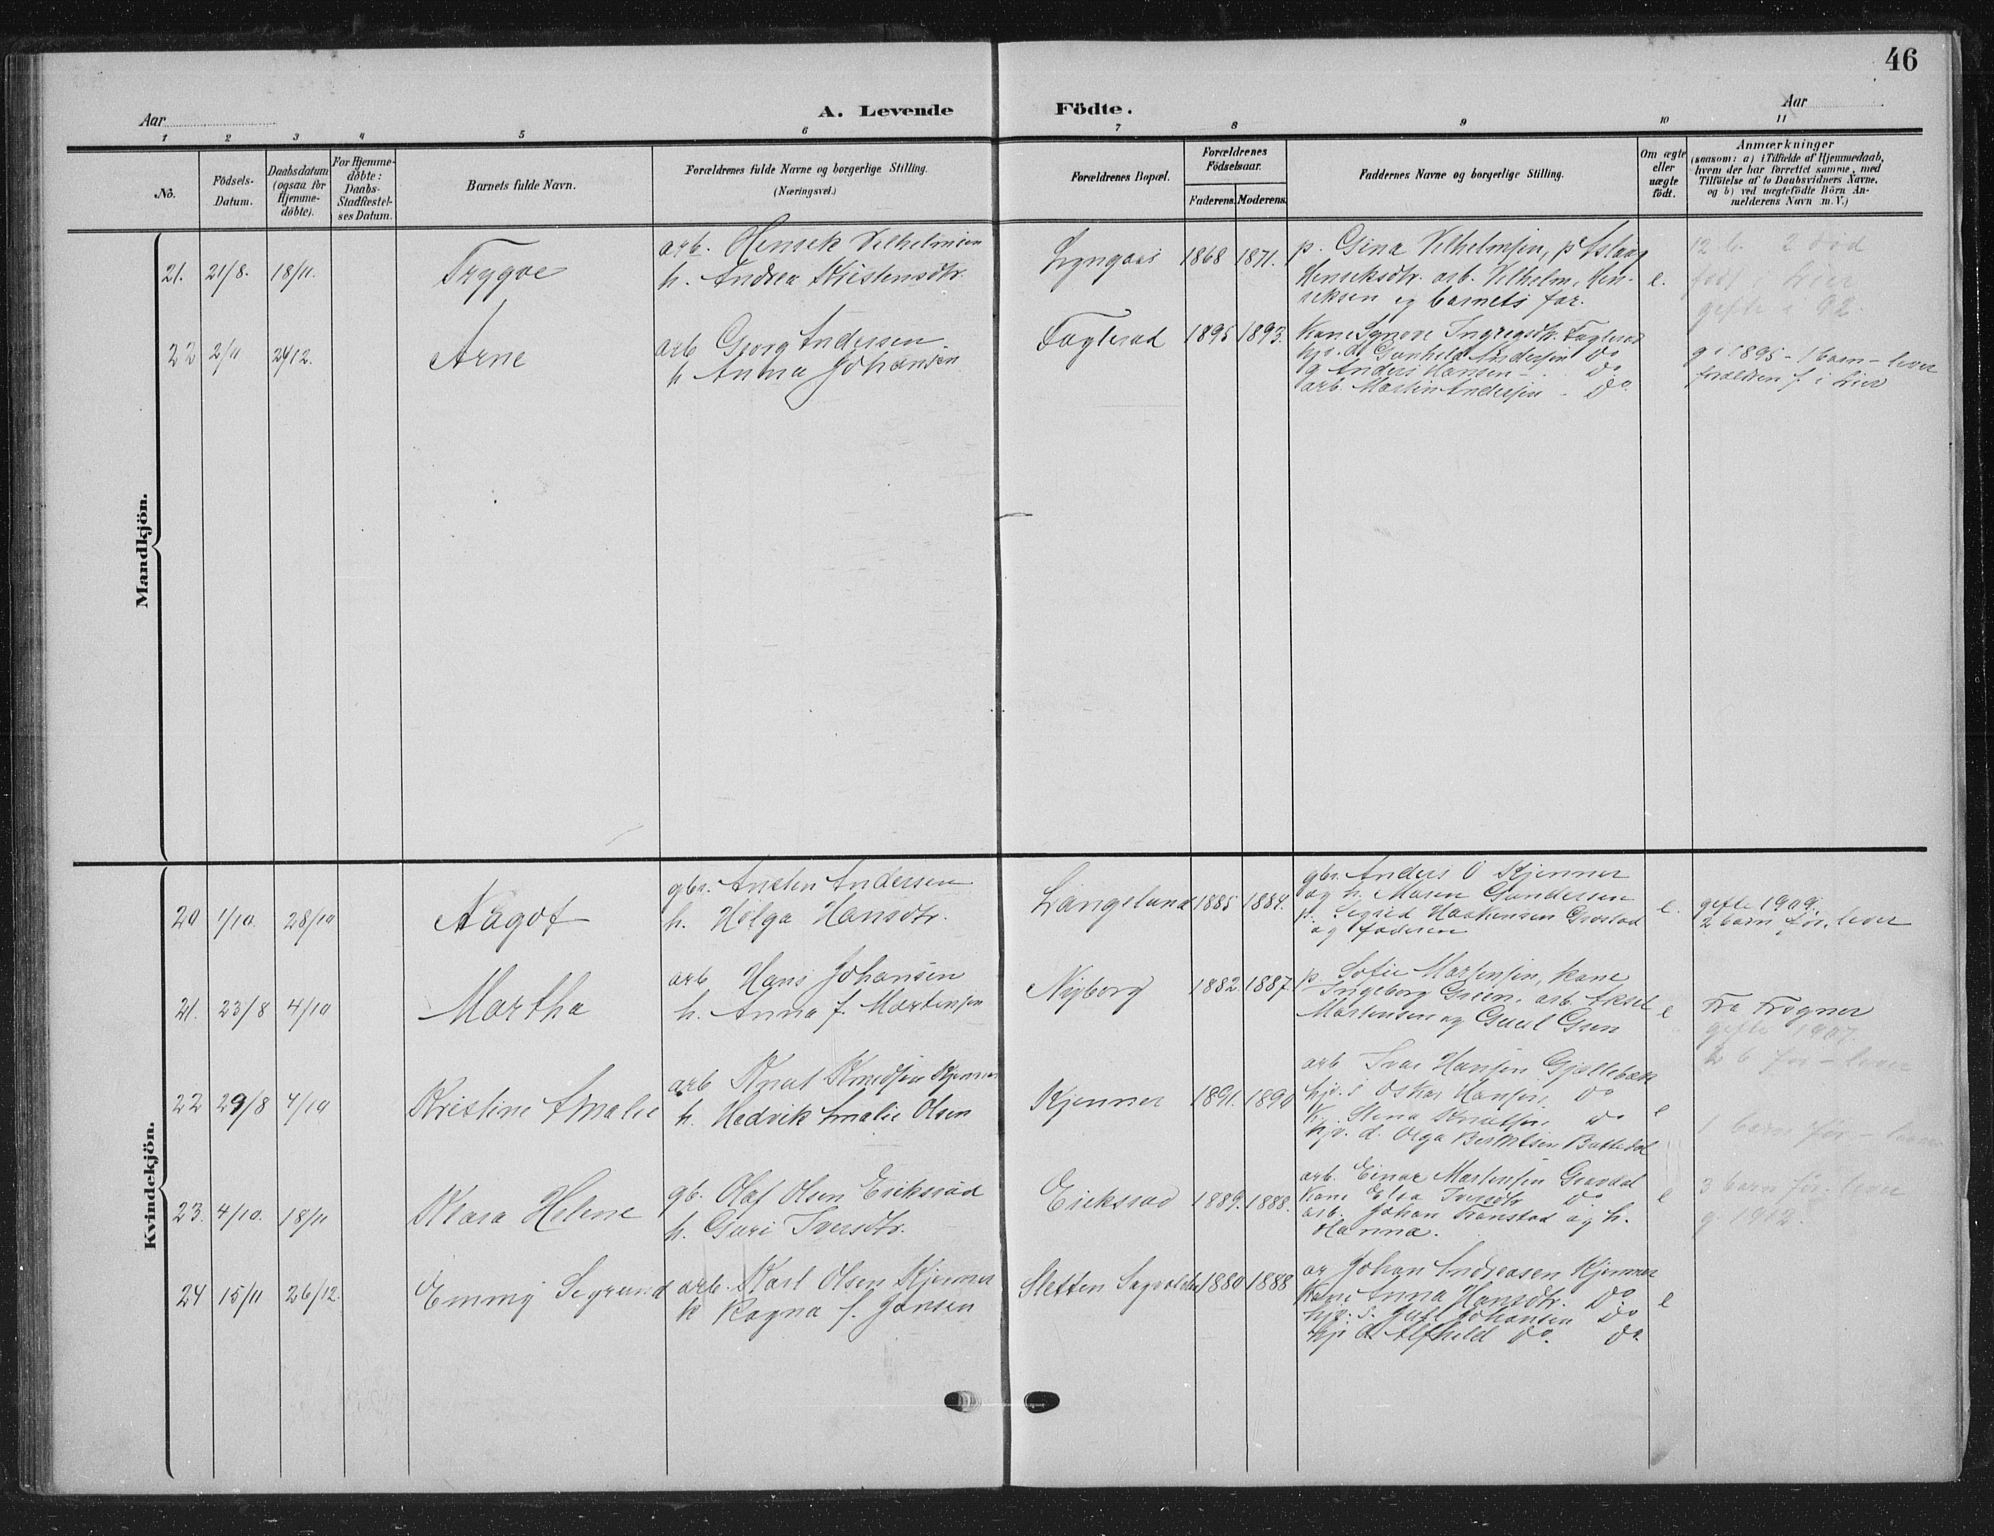 46
A. Levende Födte.
Aar
Aar
1 2 3 4 5 6 7 8 9 10 11
No.
Födsels-Datum.
Daabsdatum (ogsaa for Hjemmedöbte).
For Hjemmedöbte: Daabs-Stadfæstelses Datum.
Barnets fulde Navn.
Forældrenes fulde Navne og borgerlige Stilling. (Næringsvei.)
Forældrenes Bopæl.
Forældrenes Födselsaar.
Faderens.
Moderens.
Faddernes Navne og borgerlige Stilling.
Om ægte eller uægte födt.
Anmærkninger (saasom: a) i Tilfælde af Hjemmedaab, hvem der har forrettet samme, med Tilföielse af to Daabsvidners Navne, og b) ved uægtefödte Börn Anmelderens Navn m. V.)
Mandkjön.
21. 21/8. 18/11. Trygve
arb. Henrik Vilhelmsen
h. Andrea Kristensdtr.
Lyngaas 1868 1871.
p. Gina Vilhelmsen, p Aslaug
Henriksdtr. arb. Vilhelm Hen-
riksen og barnets far.
e.
12 b. 2 död
født i Lier
gifte i 92.
22 2/11 24/12. Arne
arb Georg Andersen.
h Anna Johansen
Faglerud 1895 1893.
Kone Synøve Ingv Faglerud
hjv. d. Gunhild Andersen Do
g Anders Hansen - Do
arb Martin Andersen - Do
g i 1895 - 1 barn - lever
foreldren f. i Lier
Kvindekjön.
20 1/10. 28/10 Aagot
gbr. Austen Andersen
h. Helga Hansdtr.
Langelund 1885 1884.
gbr. Anders O Kjenner
og h. Maren Gundersen
p. Sigrid Haakensen Grøstad
og faderen
e.
gifte 1909.
2 barn før. lever
21. 23/8 4/10 Martha
arb Hans Johansen
h. Anna f. Martensen
Nyborg 1882 1887
p. Sofie Martensen, kone
Ingeborg Green, arb. Aksel
Martensen og Green
e
Fra Frogner
gifte 1907.
2 b før - lever
22 29/8 4/10 Kristine Amalie
arb Knut Knudsen Kjenner
h. Hedvik Amalie Olsen
Kjenner 1891. 1890
arb Ivar Hansen Gjellebæk
hjv. s Oskar Hansen Do
Stina Do
hjv. d. Olga Berntsen
e
1 barn før - lever
23. 4/10. 18/11 Klara Helene
gb. Olaf Olsen Eriksrud
h. Guri Iversdtr.
Eriksrud 1889. 1888.
arb. Einar Martensen Gravdal
Kone Iversdtr Do
arb. Johan Transtad og h.
Hanna.
e
3 barn før. lever
g. 1912.
24 15/11 26/12. Emmy Sigrund
arb. Karl Olsen Kjenner
h Ragna f. Jansen
Sletten 1880 1888
ar Johan Andreasen Kjenner
Kone Anna Hansdtr. Do
hjv. s. Johansen Do
hjv d. Alfhild Do. Do
e